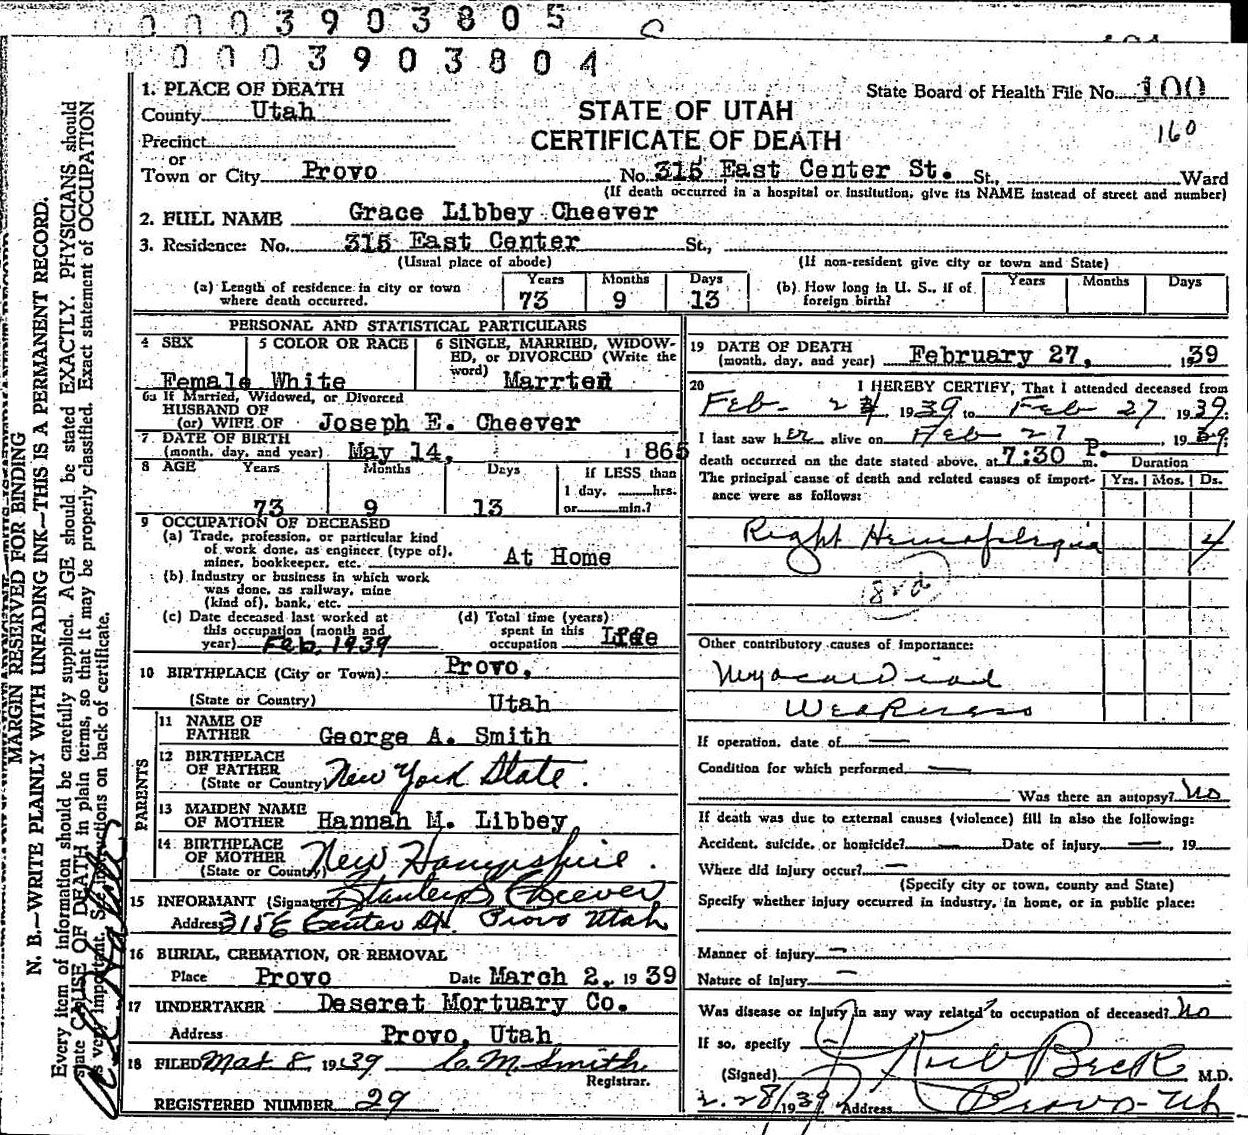 0003903805
0003903804
1. PLACE OF DEATH
County Utah
Precinct
or
Town or City Provo
STATE OF UTAH
CERTIFICATE OF DEATH
State Board of Health File No. 100
160
No. 315 East Center St. St., Ward
(If death occurred in a hospital or institution, give its NAME instead of street and number)
2. FULL NAME Grace Libbey Cheever
3. Residence: No. 315 East Center St.,
(Usual place of abode) (If non-resident give city or town and State)
(a) Length of residence in city or town where death occurred. Years 73 Months 9 Days 13
(b) How long in U. S., if of foreign birth? Years Months Days
PERSONAL AND STATISTICAL PARTICULARS
4 SEX Female
5 COLOR OR RACE White
6 SINGLE, MARRIED, WIDOWED, or DIVORCED (Write the word) Married
6a If Married, Widowed, or Divorced
HUSBAND OF
(or) WIFE OF Joseph E. Cheever
7 DATE OF BIRTH
(month, day, and year) May 14, 1865
8 AGE Years 73 Months 9 Days 13
If LESS than
1 day, hrs.
or min.?
9 OCCUPATION OF DECEASED
(a) Trade, profession, or particular kind
of work done, as engineer (type of),
miner, bookkeeper, etc. At Home
(b) Industry or business in which work
was done, as railway, mine
(kind of), bank, etc.
(c) Date deceased last worked at
this occupation (month and
year) Feb, 1939
(d) Total time (years)
spent in this
occupation Life
10 BIRTHPLACE (City or Town) Provo,
(State or Country) Utah
PARENTS
11 NAME OF
FATHER George A. Smith
12 BIRTHPLACE
OF FATHER
(State or Country) New York State.
13 MAIDEN NAME
OF MOTHER Hannah M. Libbey
14 BIRTHPLACE
OF MOTHER
(State or Country) New Hampshire.
15 INFORMANT (Signature) Stanley S Cheever
Address 315 E Center St. Provo Utah
16 BURIAL, CREMATION, OR REMOVAL
Place Provo Date March 2, 1939
17 UNDERTAKER Deseret Mortuary Co.
Address Provo, Utah
18 FILED Mar. 8 1939 C. M. Smith
Registrar.
REGISTERED NUMBER 29
19 DATE OF DEATH
(month, day, and year) February 27, 1939
20 I HEREBY CERTIFY, That I attended deceased from
Feb- 24 1939 to Feb 27 1939.
I last saw her alive on Feb 27, 1939.
death occurred on the date stated above, at 7:30 P. m.
Duration
The principal cause of death and related causes of importance were as follows: Yrs. Mos. Ds.
Right Hemaplegia 4
Other contributory causes of importance:
Myocardial
Weakness
If operation, date of —
Condition for which performed —
Was there an autopsy? No
If death was due to external causes (violence) fill in also the following:
Accident, suicide, or homicide? — Date of injury —, 19
Where did injury occur? —
(Specify city or town, county and State)
Specify whether injury occurred in industry, in home, or in public place:
Manner of injury —
Nature of injury —
Was disease or injury in any way related to occupation of deceased? No
If so, specify
(Signed) Beck M.D.
2.28/1939 Address Provo-Ut
MARGIN RESERVED FOR BINDING
N. B.—WRITE PLAINLY WITH UNFADING INK—THIS IS A PERMANENT RECORD.
Every item of information should be carefully supplied. AGE should be stated EXACTLY. PHYSICIANS should
state CAUSE OF DEATH in plain terms, so that it may be properly classified. Exact statement of OCCUPATION
is very important. See instructions on back of certificate.